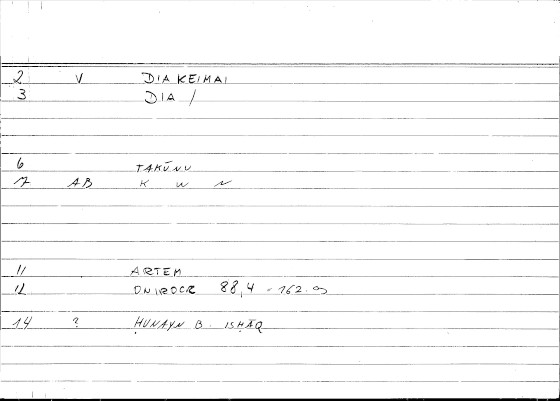 2 V DIAKEIMAI
3 DIA /
6 TAKŪNU
7 AB K W N
11 ARTEM
12 ONIROCR 88,4 - 162.9
14 ? ḤUNAYN B. ISḤĀQ